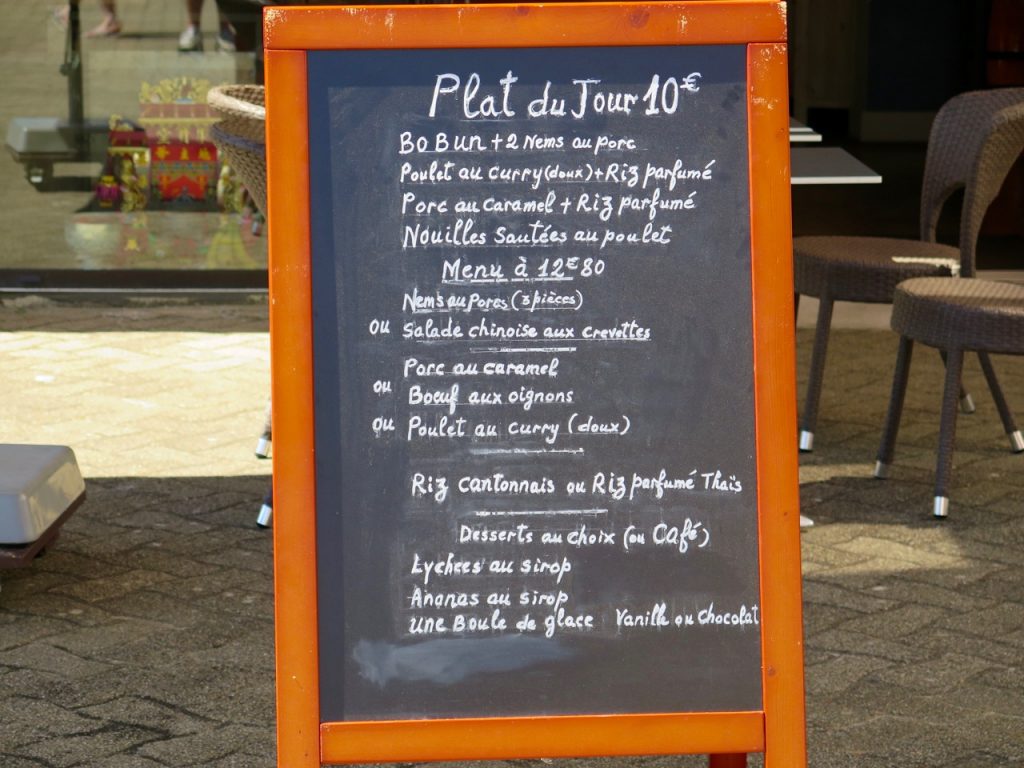 Plat du Jour 10€
Bo Bun + 2 Nems au porc
Poulet au curry (doux) + Riz parfumé
Porc au Caramel + Riz parfumé
Nouilles Sautées au poulet
Menu à 12€80
Nems au Porcs (3 pièces)
ou Salade chinoise aux crevettes
Porc au caramel
ou Boeuf aux oignons
ou Poulet au curry (doux)
Riz cantonnais ou Riz parfumé Thaïs
Desserts au choix (ou Café)
Lychees au sirop
Ananas au sirop
une Boule de glace Vanille ou Chocolat